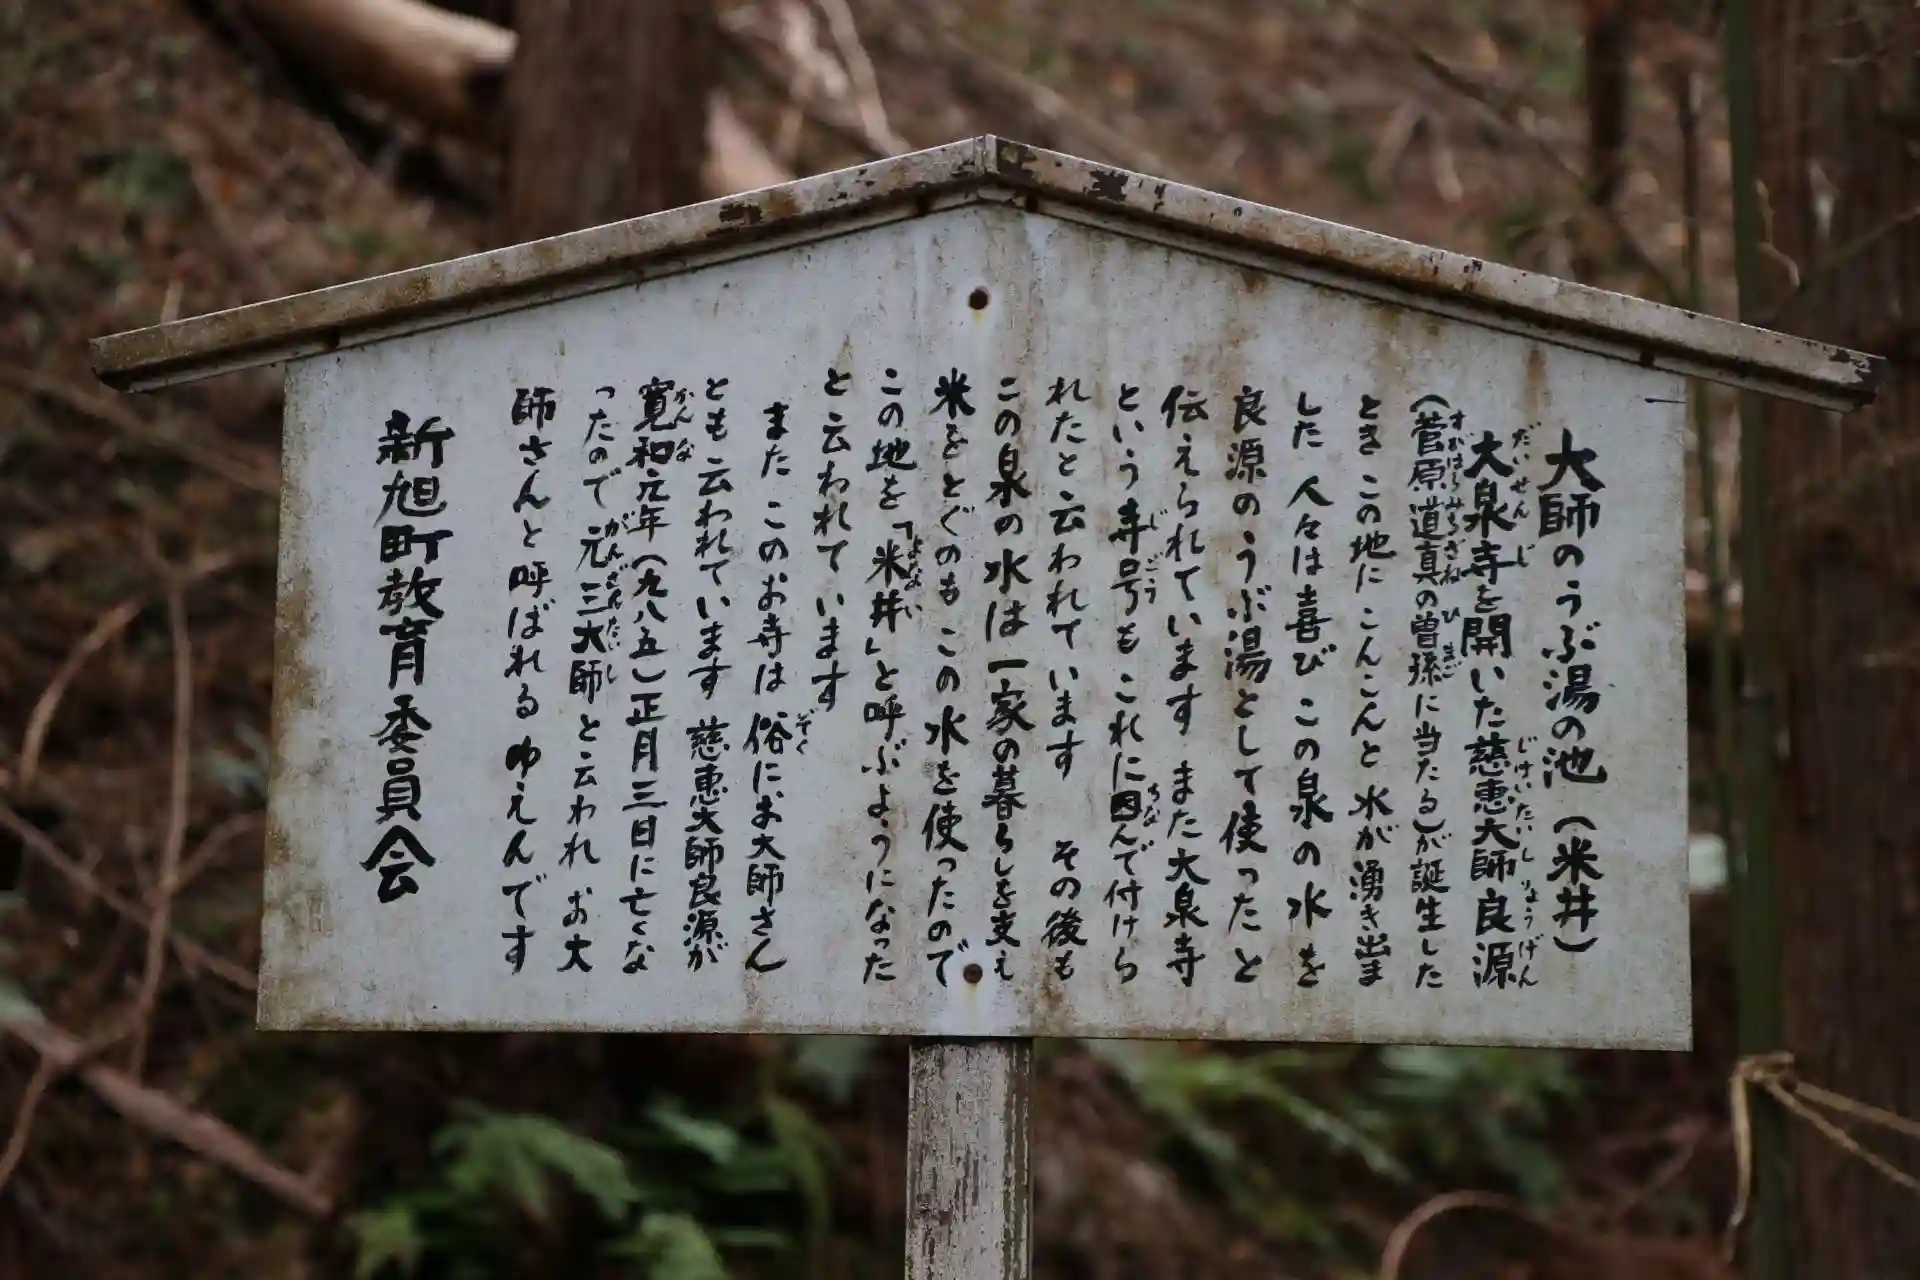 大師のうぶ湯の池(米井)
大泉寺を開いた慈恵大師良源
(菅原道真の曽孫に当たる)が誕生した
ときこの地にこんこんと水が湧き出ま
した人々は喜びこの泉の水を
良源のうぶ湯として使ったと
伝えられていますまた大泉寺
という寺号もこれに因んで付けら
れたと云われています その後も
この泉の水は一家の暮らしを支え
米をとぐのもこの水を使ったので
この地を「米井」と呼ぶようになった
と云われています
またこのお寺は俗にお大師さん
とも云われています慈恵大師良源が
寛和元年(九八五)正月三日に亡くな
ったので元三大師と云われお大
師さんと呼ばれるゆえんです
新旭町教育委員会